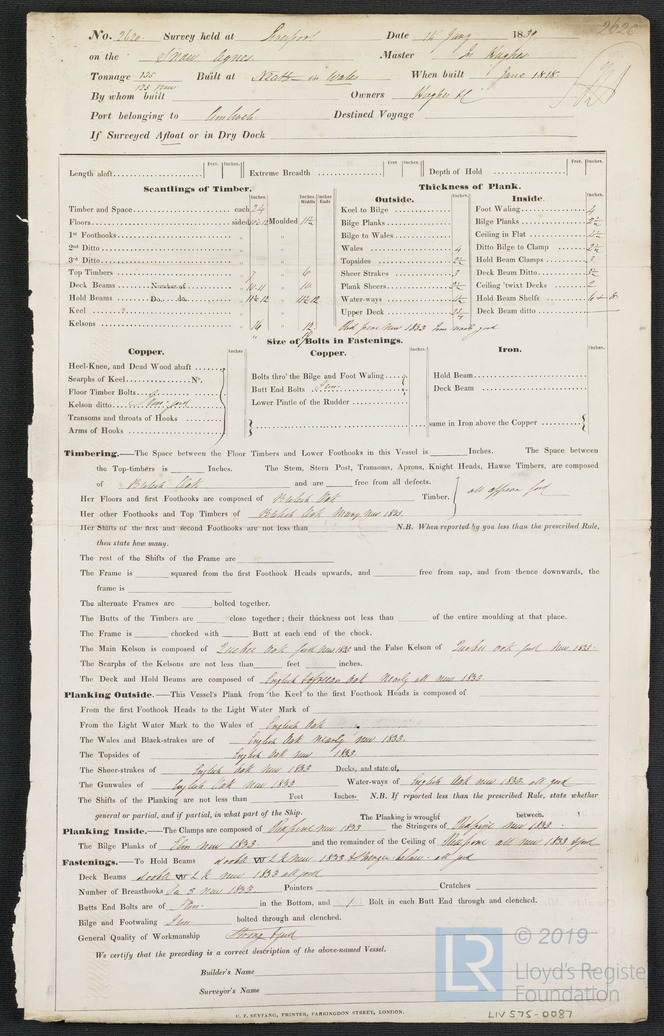 No. 2620. Survey held at Liverpool Date 14 Jany 1839
2620
on the Snow Agnes Master Jn Hughes
Tonnage 135 Built at Neath in Wales When built June 1818
123 New
By whom built Owners Hughes &c
Port belonging to Amlwch Destined Voyage
If Surveyed Afloat or in Dry Dock
Length aloft Feet. Inches. Extreme Breadth Feet Inches. Depth of Hold Feet. Inches.
Scantlings of Timber.
Inches Inches Middle Inches Ends
Timber and Space each 24
Floors sided Moulded
1st Foothooks „ „
2nd Ditto „ „
3rd Ditto „ „
Top Timbers 7 „ 6
Deck Beams Number of 10-11 „ 10
Hold Beams Do. do. 11½ 12 „ 11½ 12
Keel „
Kelsons 14 „ 12
Thickness of Plank.
Outside.
Inches.
Keel to Bilge
Bilge Planks
Bilge to Wales
Wales 4
Topsides 2½
Sheer Strakes 3
Plank Sheers 2½
Water-ways
Upper Deck
Red pine New 1833
Inside.
Inches.
Foot Waling 4
Bilge Planks 2½
Ceiling in Flat
Ditto Bilge to Clamp 2½
Hold Beam Clamps 3
Deck Beam Ditto
Ceiling 'twixt Decks 2
Hold Beam Shelfs
Deck Beam ditto
Size of Bolts in Fastenings.
Copper. Copper. Iron.
Inches Inches Inches.
Heel-Knee, and Dead Wood abaft
Scarphs of Keel No.
Floor Timber Bolts
Kelson ditto Iron good
Transoms and throats of Hooks
Arms of Hooks
Bolts thro' the Bilge and Foot Waling
Butt End Bolts Iron
Lower Pintle of the Rudder
Hold Beam
Deck Beam
same in Iron above the Copper
Timbering.—The Space between the Floor Timbers and Lower Foothooks in this Vessel is Inches. The Space between
the Top-timbers is Inches. The Stem, Stern Post, Transoms, Aprons, Knight Heads, Hawse Timbers, are composed
of British Oak and are free from all defects.
Her Floors and first Foothooks are composed of British Oak Timber. all appear good
Her other Foothooks and Top Timbers of British Oak Many New 1833
Her Shifts of the first and second Foothooks are not less than N.B. When reported by you less than the prescribed Rule,
then state how many.
The rest of the Shifts of the Frame are
The Frame is squared from the first Foothook Heads upwards, and free from sap, and from thence downwards, the
frame is
The alternate Frames are bolted together.
The Butts of the Timbers are close together; their thickness not less than of the entire moulding at that place.
The Frame is chocked with Butt at each end of the chock.
The Main Kelson is composed of Quebec Oak good New 1833 and the False Kelson of Quebec oak good New 1833.
The Scarphs of the Kelsons are not less than feet inches.
The Deck and Hold Beams are composed of English oak Nearly all New 1833
Planking Outside.—This Vessel's Plank from the Keel to the first Foothook Heads is composed of
From the first Foothook Heads to the Light Water Mark of
From the Light Water Mark to the Wales of English Oak
The Wales and Black-strakes are of English Oak nearly New 1833.
The Topsides of English Oak New 1833
The Sheer-strakes of English Oak New 1833 Decks, and state of,
The Gunwales of English Oak New 1833 Water-ways of English Oak New 1833 all good
The Shifts of the Planking are not less than Feet Inches. N.B. If reported less than the prescribed Rule, state whether
general or partial, and if partial, in what part of the Ship. The Planking is wrought between.
Planking Inside.—The Clamps are composed of Red pine New 1833 the Stringers of Red pine New 1833
The Bilge Planks of Elm New 1833 and the remainder of the Ceiling of Red pine all New 1833 & good
Fastenings.—To Hold Beams New 1833 all good
Deck Beams New 1833 all good
Number of Breasthooks 3 New 1833 Pointers Crutches
Butts End Bolts are of Iron in the Bottom, and 1 Bolt in each Butt End through and clenched.
Bilge and Footwaling Iron bolted through and clenched.
General Quality of Workmanship Strong & good
We certify that the preceding is a correct description of the above-named Vessel.
Builder's Name
Surveyor's Name
C. F. SEYFANG, PRINTER, FARRINGDON STREET, LONDON.
LR © 2019
Lloyd's Register
Foundation
LIV 575-0087